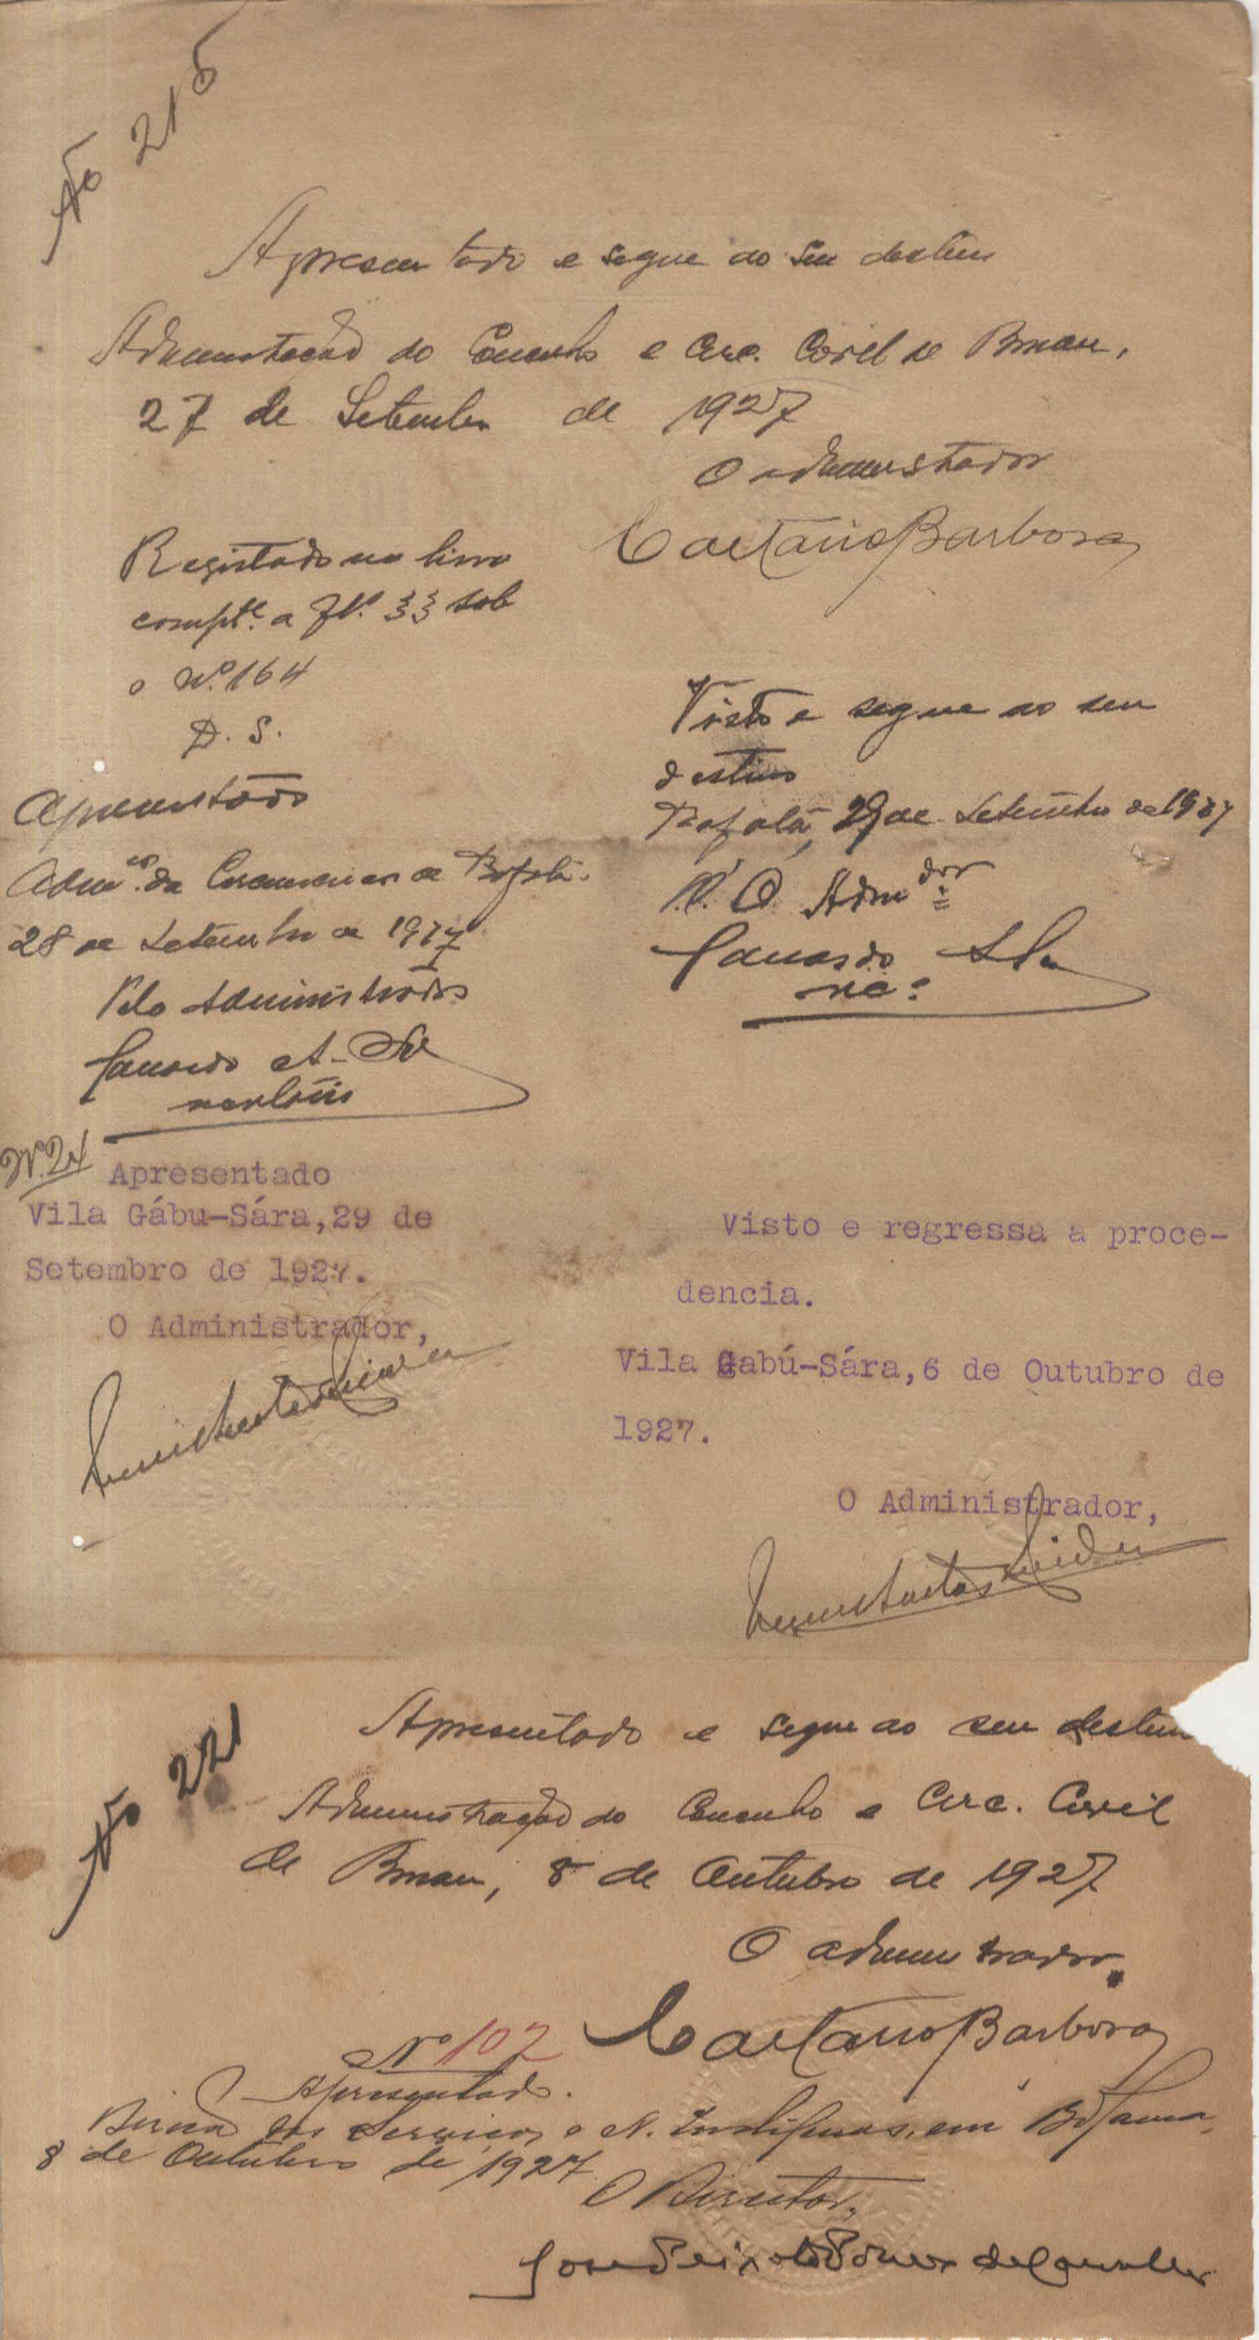 Nº 215
Apresentado e segue ao seu destino
Administração do Concelho e Circ. Civil de Bissau,
27 de Setembro de 1927
O administrador
Caetano Barbosa
Registado no livro
compte. a fl. 33 sob
o Nº. 164
D. S.
Visto e segue ao seu
destino
Bafatá, 29 de Setembro de 1927
O Admdor
Apresentado
Admão. da Circunscrição de Bafatá.
28 de Setembro de 1927
Pelo Administrador
Nº. 24
Apresentado
Vila Gábu-Sára, 29 de
Setembro de 1927.
O Administrador,
Visto e regressa a proce-
dencia.
Vila Gabú-Sára, 6 de Outubro de
1927.
O Administrador,
Nº 221
Apresentado e segue ao seu destino
Administração do Concelho e Circ. Civil
de Bissau, 8 de Outubro de 1927
O administrador.
Caetano Barbosa
Nº 102
Apresentado.
dos Serviços e N. Indigenas, em Bolama,
8 de Outubro de 1927
O Director,
José Peixoto Ponces de Carvalho